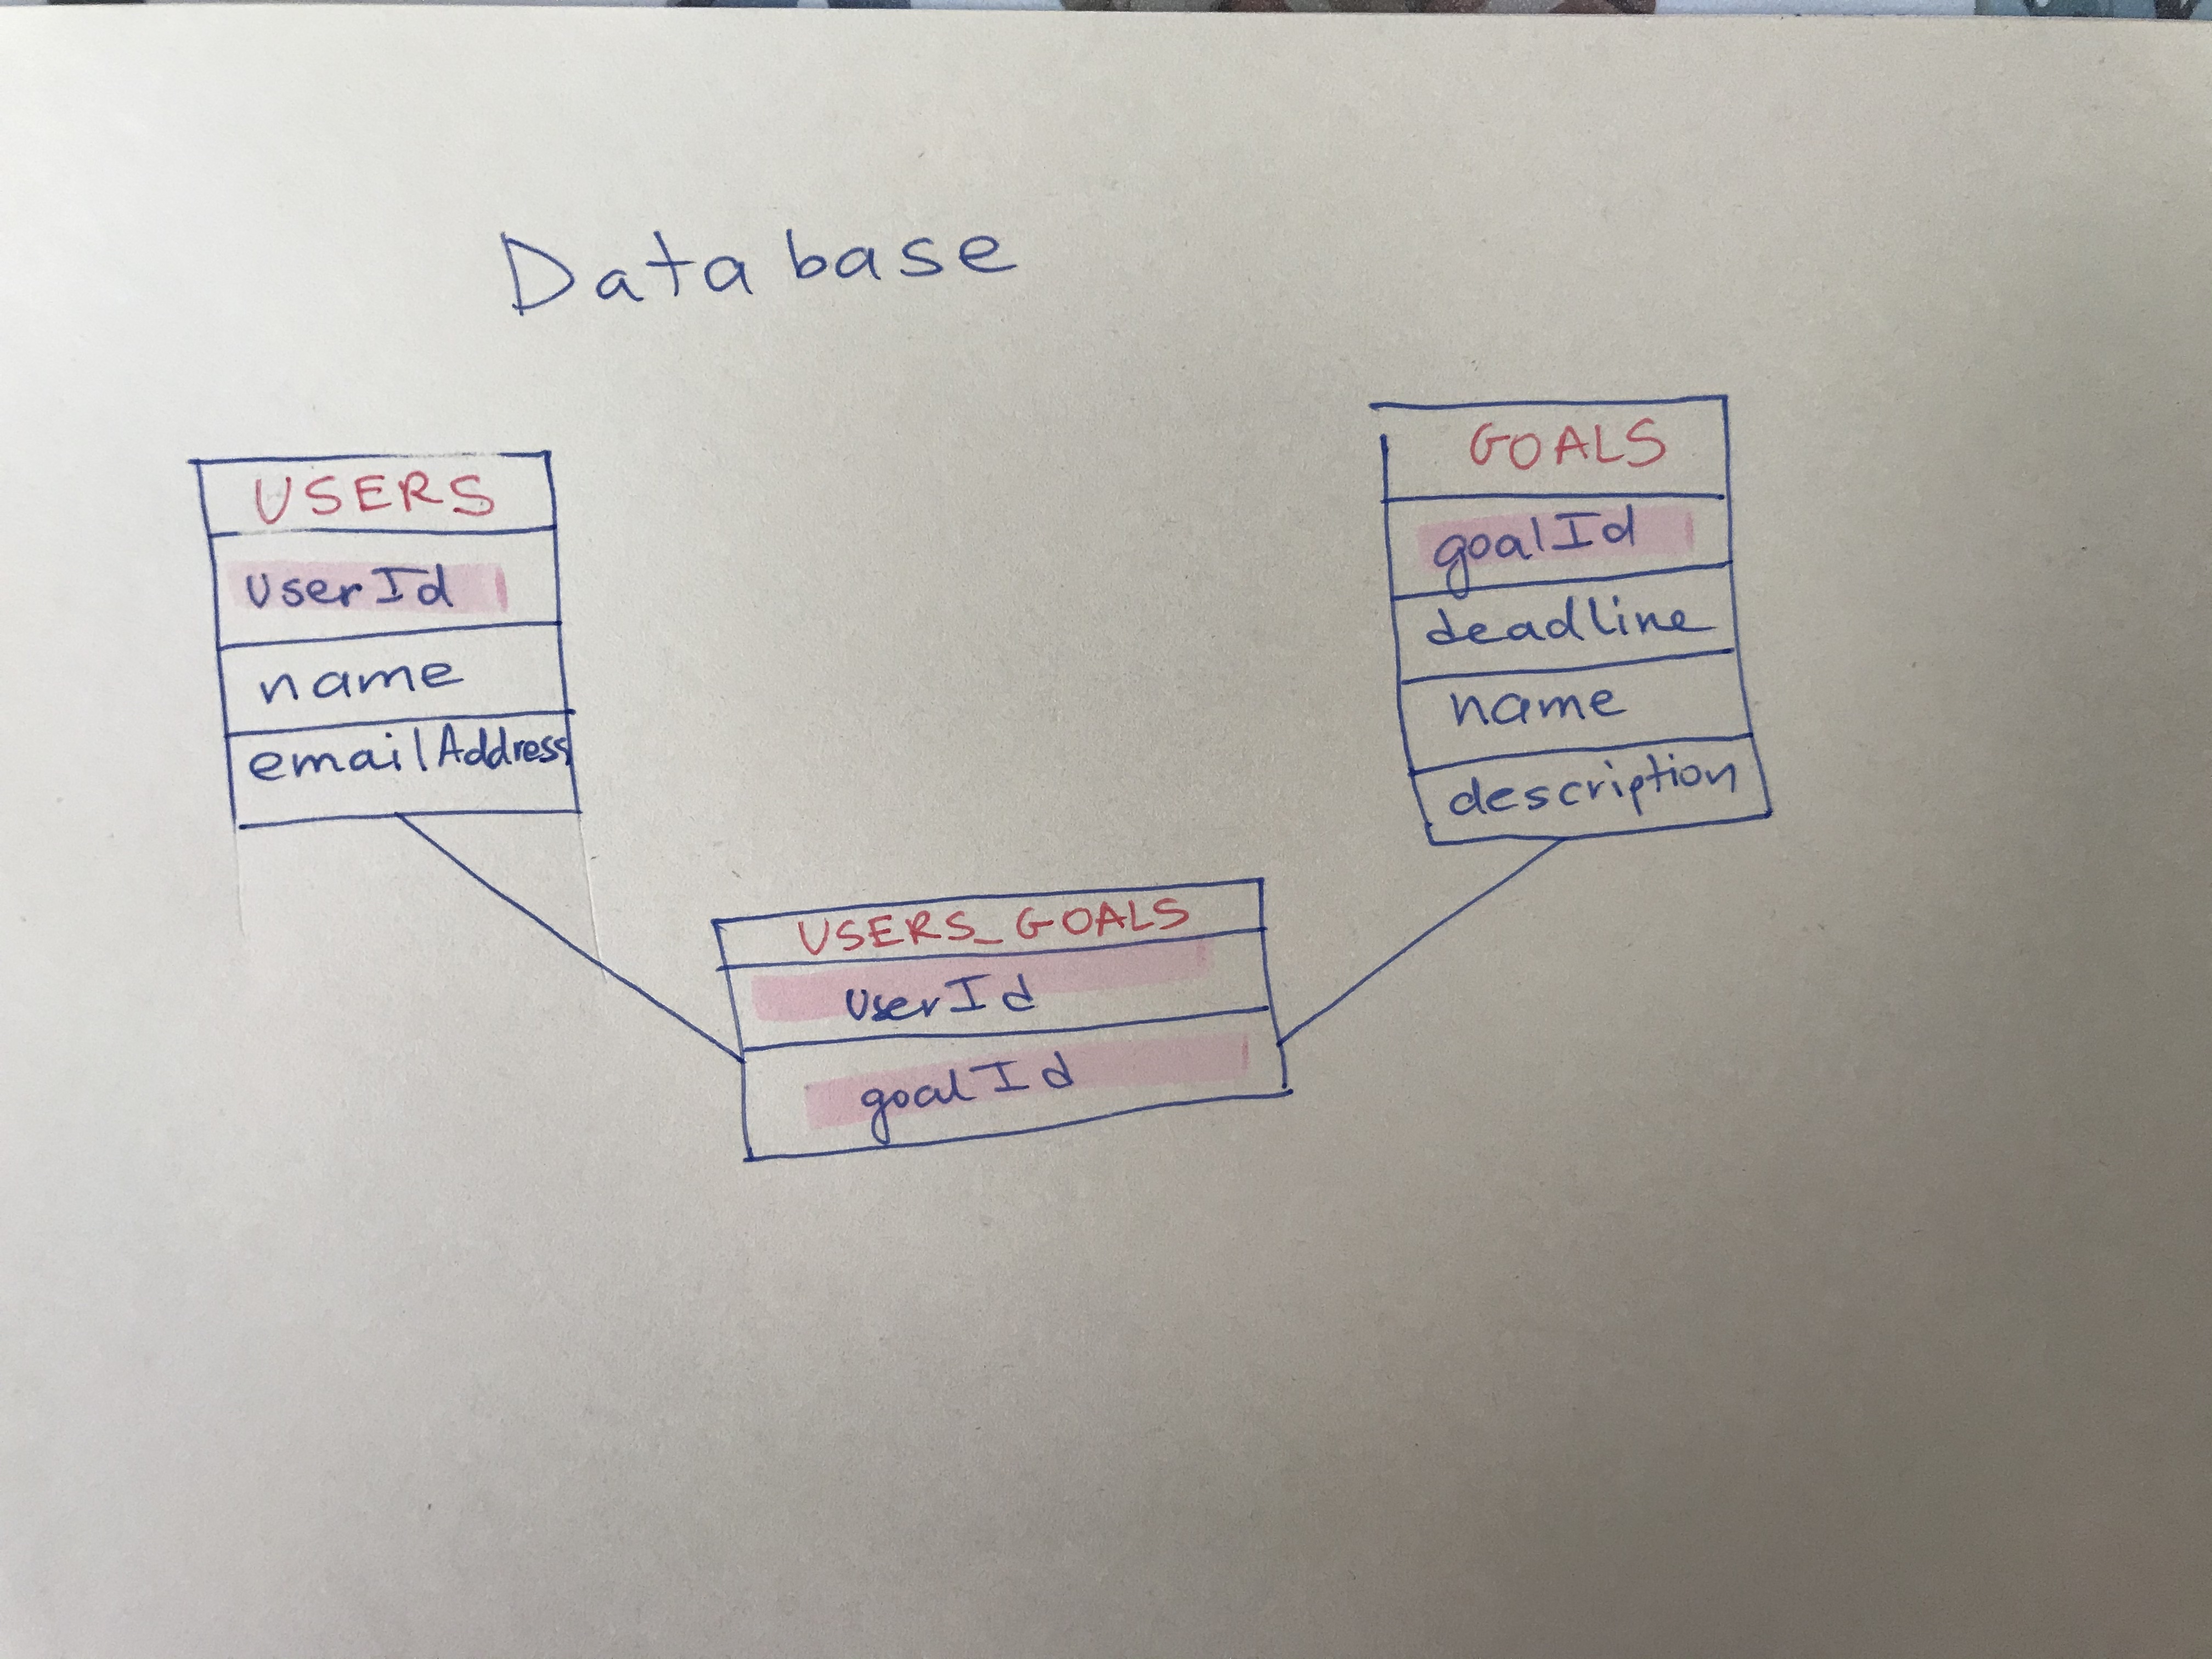 Database
USERS
userId
name
emailAddress
GOALS
goalId
deadline
name
description
USERS_GOALS
userId
goalId